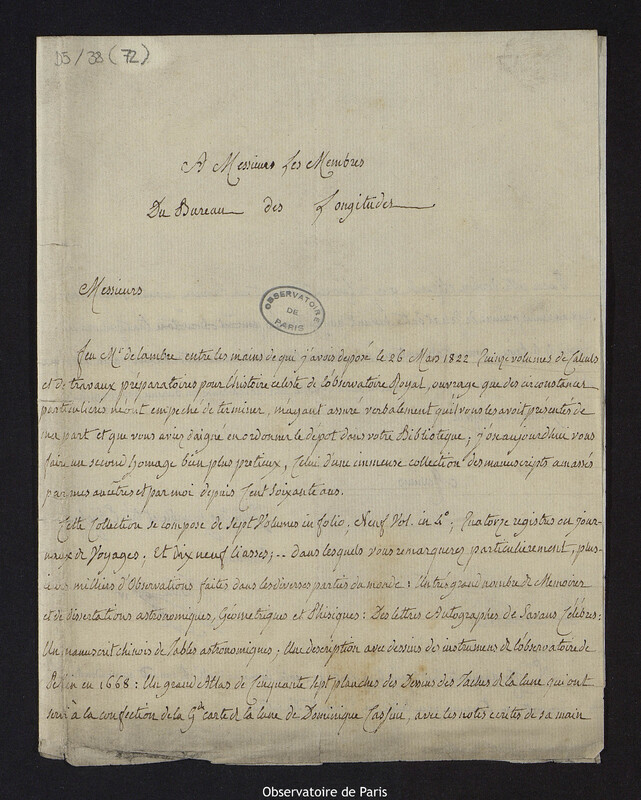 D5/38 (72)
A Messieurs les Membres
Du Bureau des Longitudes
Messieurs
OBSERVATOIRE
DE
PARIS
feu Mr. delambre entre les mains de qui j'avois deposé le 26 Mars 1822 Quinze volumes de Calculs
et de travaux préparatoires pour l'histoire celeste de l'observatoire Royal, ouvrage que des circonstances
particulieres m'ont empeché de terminer, m'ayant assuré verbalement qu'il vous les avoit présentés de
ma part et que vous aviez daigné en ordonner le dépot dans votre Biblioteque; j'ose aujourdhui vous
faire un second homage bien plus pretieux, Celui d'une immense collection des manuscripts amassés
par mes ancetres et par moi depuis Cent soixante ans.
Cette Collection se compose de sept Volumes in folio; Neuf Vol. in 4°; Quatorze registres ou jour-
naux de Voyages; Et dix neuf liasses; -- dans lesquels vous remarquerez particulierement, plus-
ieurs milliers d'Observations faites dans les diverses parties du monde: Un très grand nombre de Memoires
et de dissertations astronomiques, Géometriques et Phisiques: Des lettres Autographes de Savans Célèbres:
Un manuscrit chinois de Tables astronomiques; Une description avec dessins de instrumens de l'observatoire de
Pekin en 1668: Un grand Atlas de Cinquante sept planches des Dessins des Taches de la lune qui ont
servi à la confection de la Gde carte de la lune de Dominique Cassini, avec les notes ecrites de sa main
Observatoire de Paris